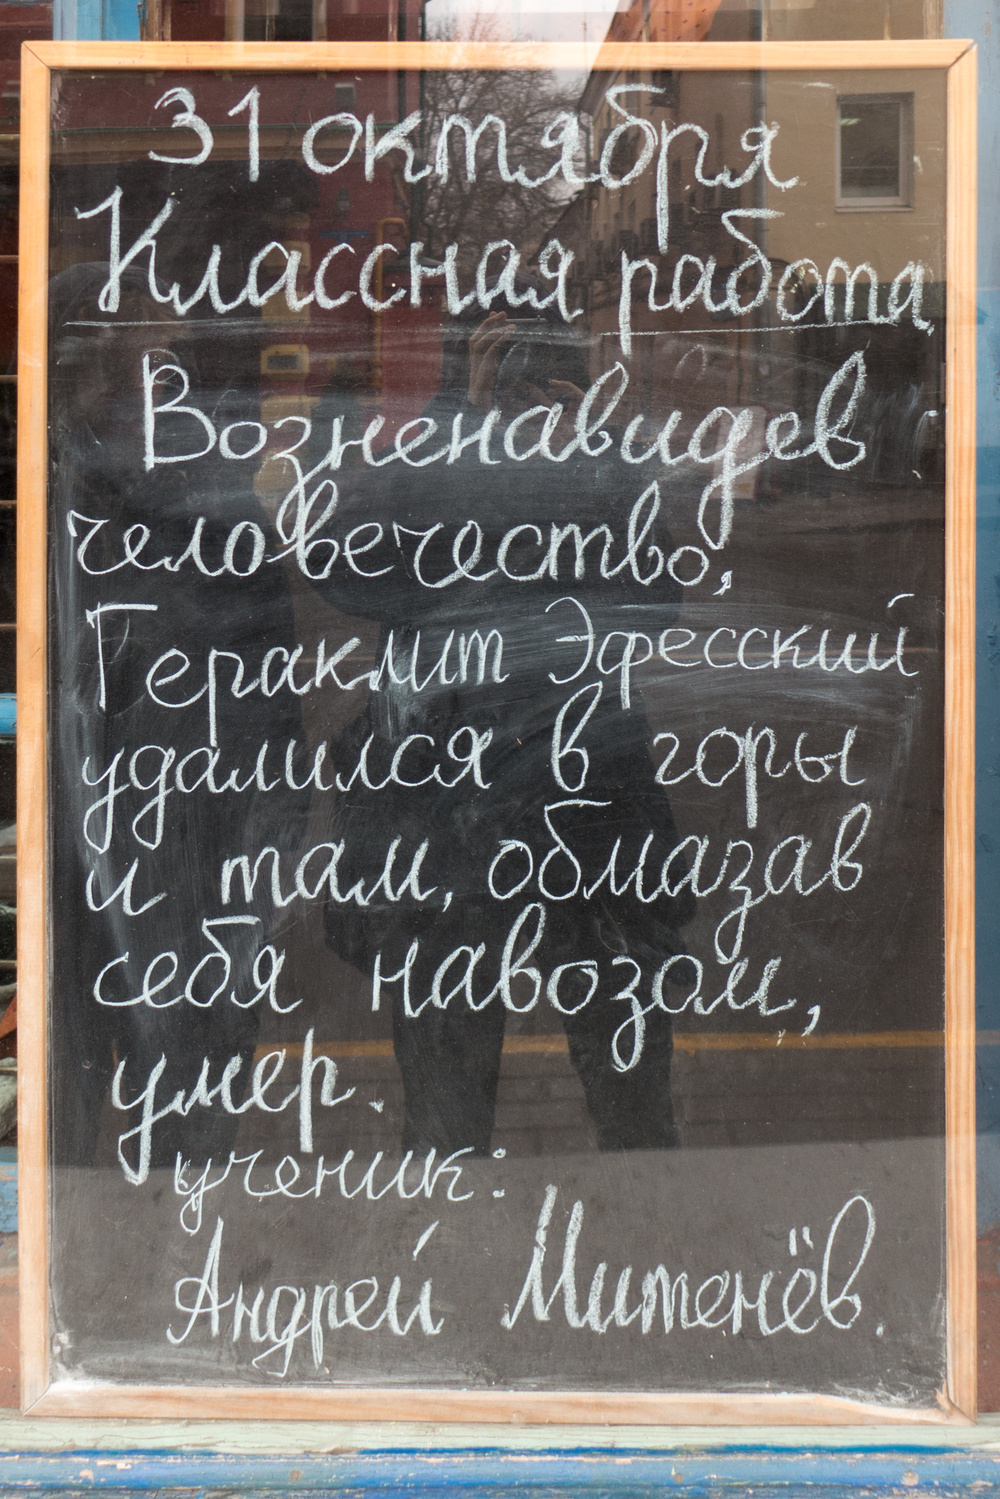 31 октября
Классная работа.
Возненавидев
человечество,
Гераклит Эфесский
удалился в горы
и там, обмазав
себя навозом,
умер.
ученик:
Андрей Митенёв.